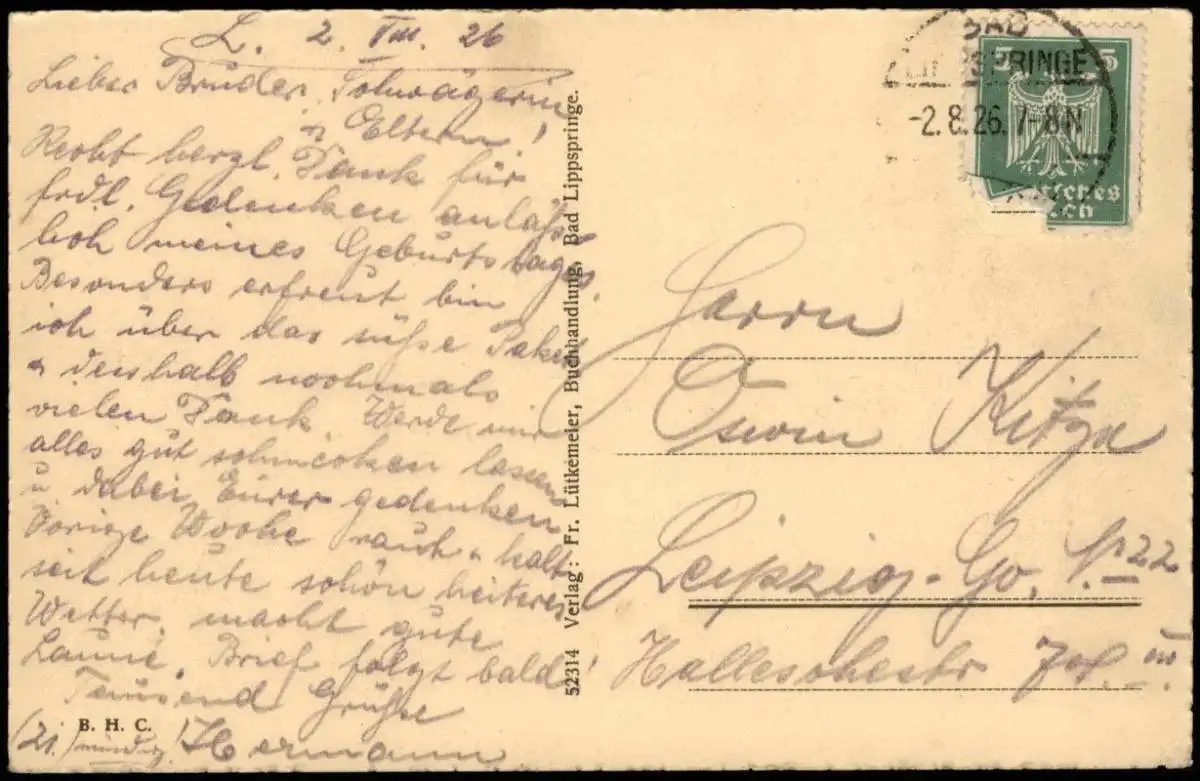 L. 2. VIII. 26
Lieber Bruder, Schwägerin
+ Eltern!
Recht herzl. Dank für
frdl. Gedenken anläss-
lich meines Geburtstages.
Besonders erfreut bin
ich über das süße Paket
+ deshalb nochmals
vielen Dank. Werde mir
alles gut schmecken lassen
u. dabei Eurer gedenken
Vorige Woche rauh + kalt
seit heute schön heiteres
Wetter, macht gute
Laune. Brief folgt bald!
Tausend Grüße
(21.) Hermann
B. H. C.
52314 Verlag: Fr. Lütkemeier, Buchhandlung, Bad Lippspringe.
BAD
LIPPSPRINGE
-2.8.26. 7-8N
5 5
Deutsches
Reich
Herrn
Oswin Kitze
Leipzig-Go. N 22
Hallischestr 701 III